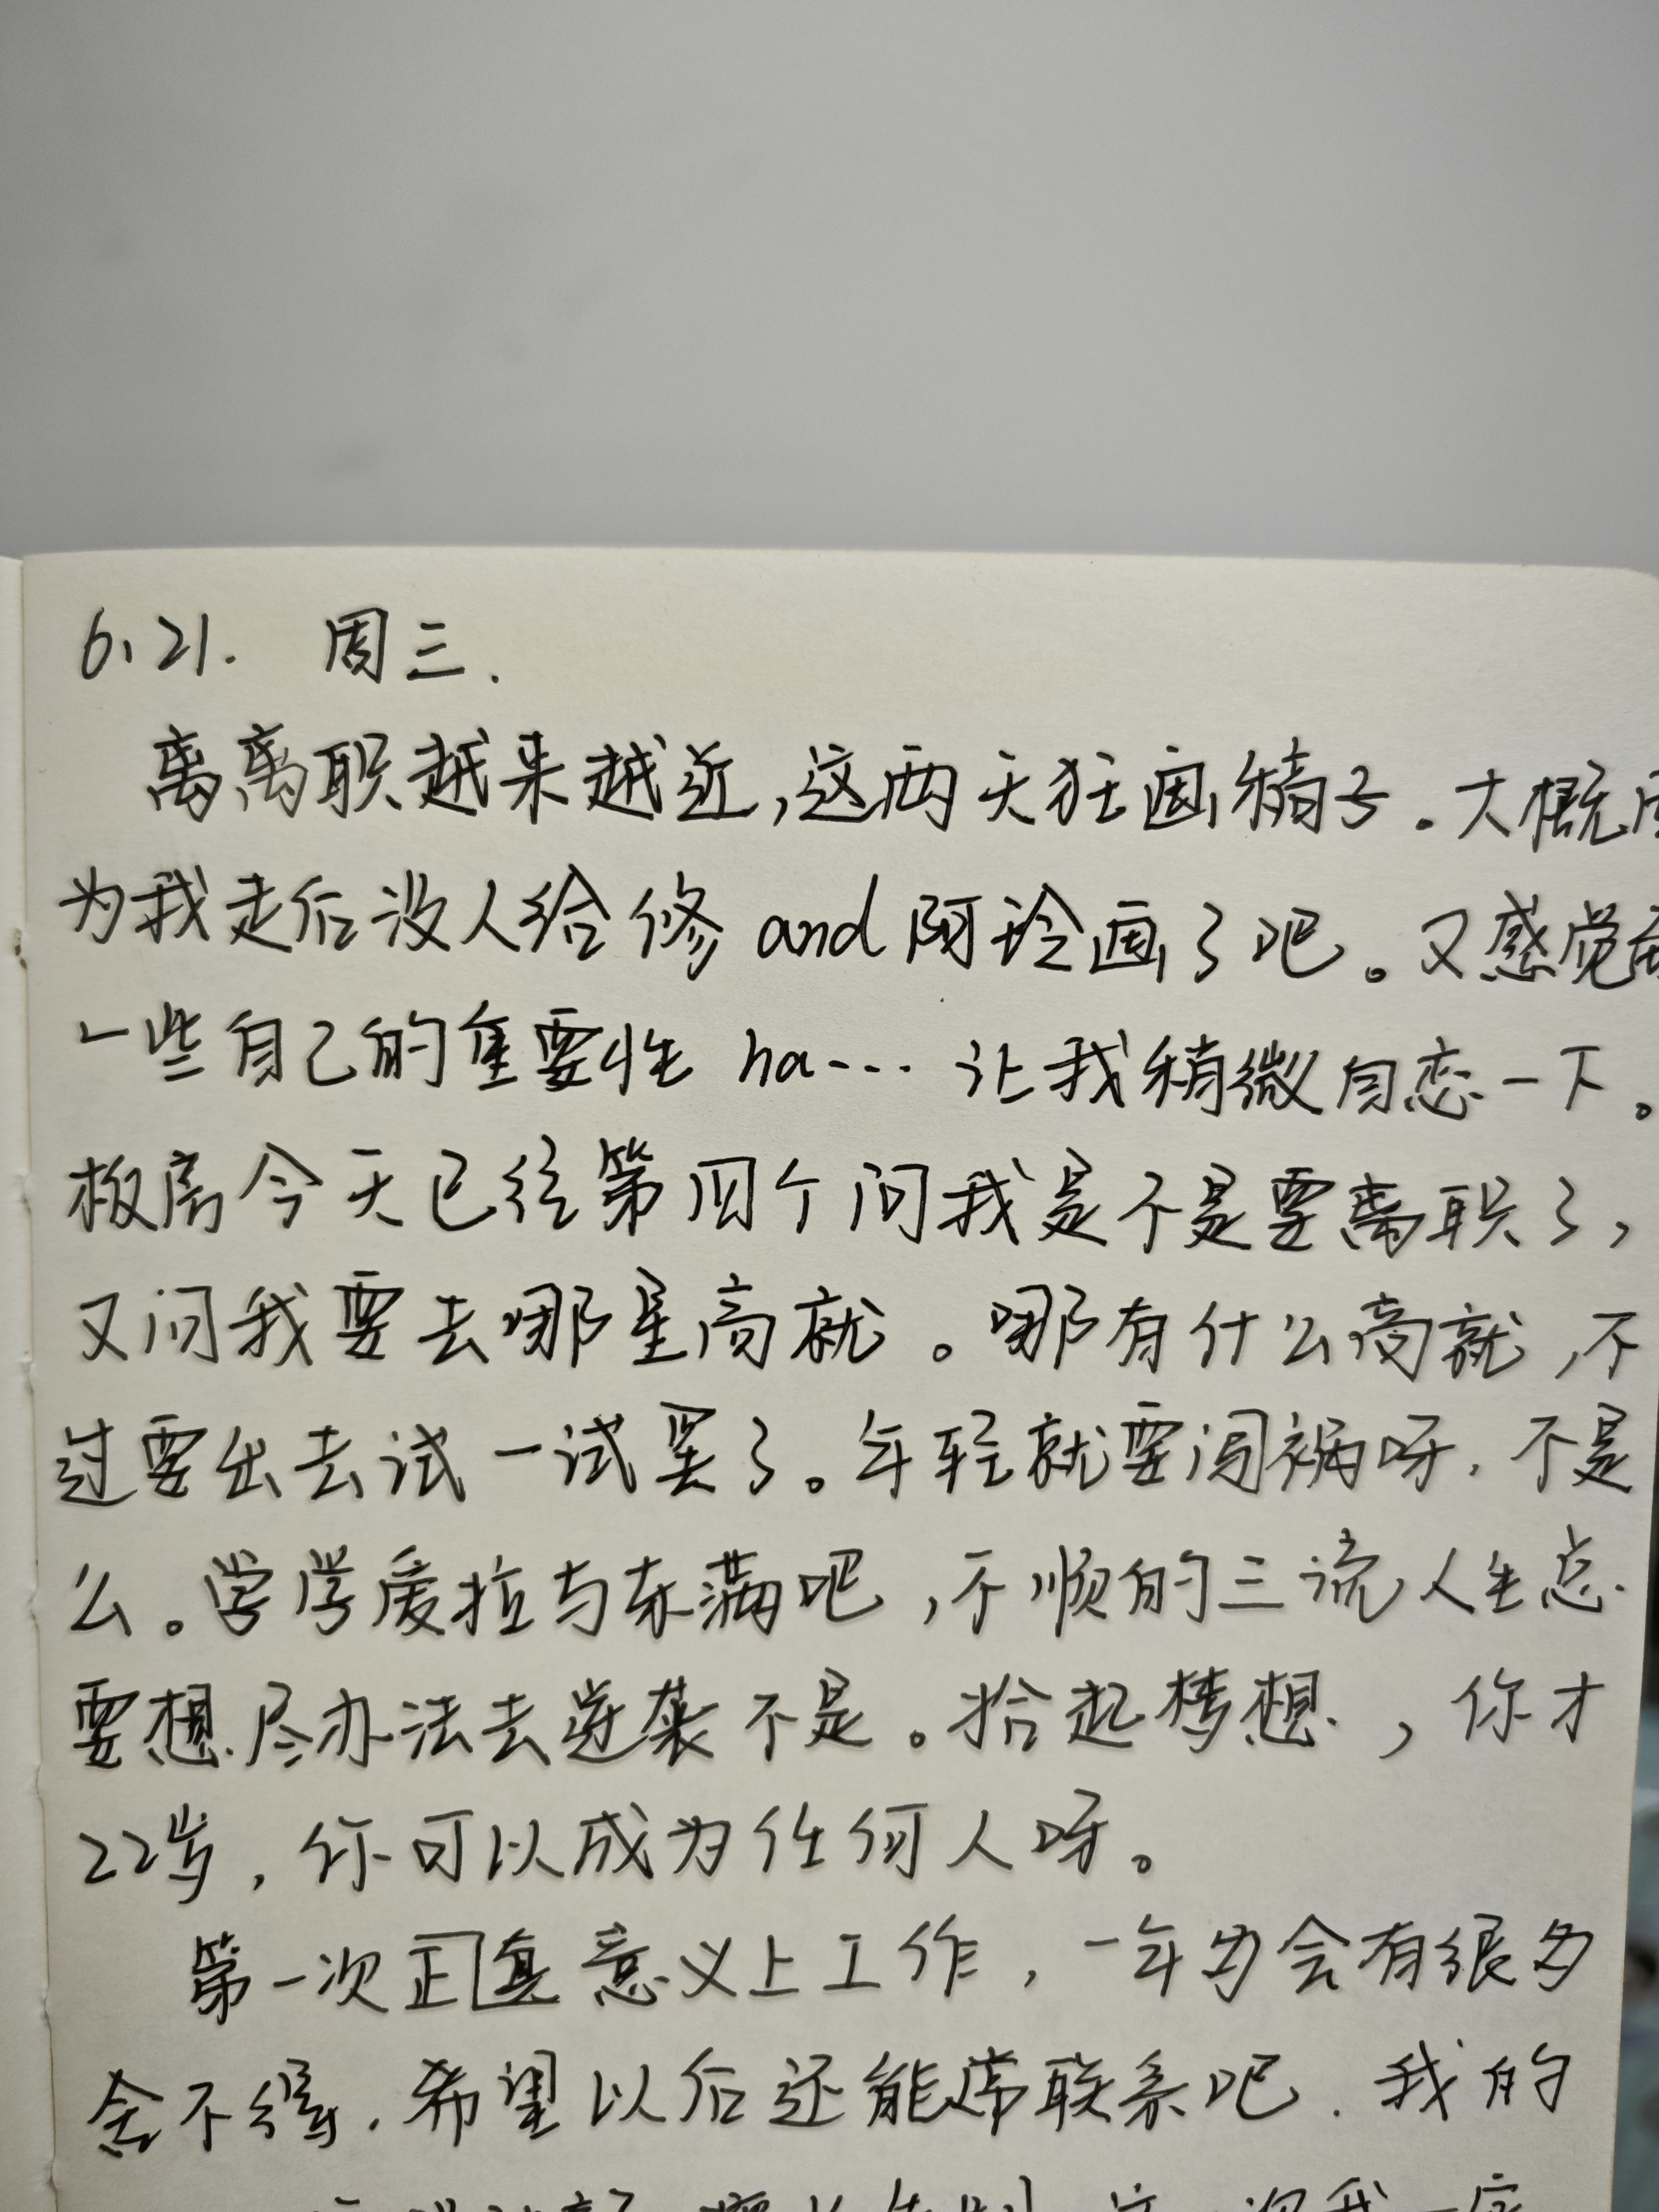 6.21. 周三.
离离职越来越近,这两天狂画稿子。大概因
为我走后没人给修 and 阿玲画了吧。又感觉到
一些自己的重要性 ha... 让我稍微自恋一下。
板房今天已经第四个问我是不是要离职了,
又问我要去哪里高就。哪有什么高就,不
过要出去试一试罢了。年轻就要闯祸呀,不是
么。学学爱拉与东满吧,不顺的三流人生总
要想尽办法去逆袭不是。拾起梦想,你才
22岁,你可以成为任何人呀。
第一次正真意义上工作,一年多会有很多
舍不得,希望以后还能常联系吧.我的